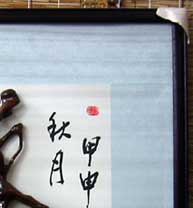 甲申
秋月